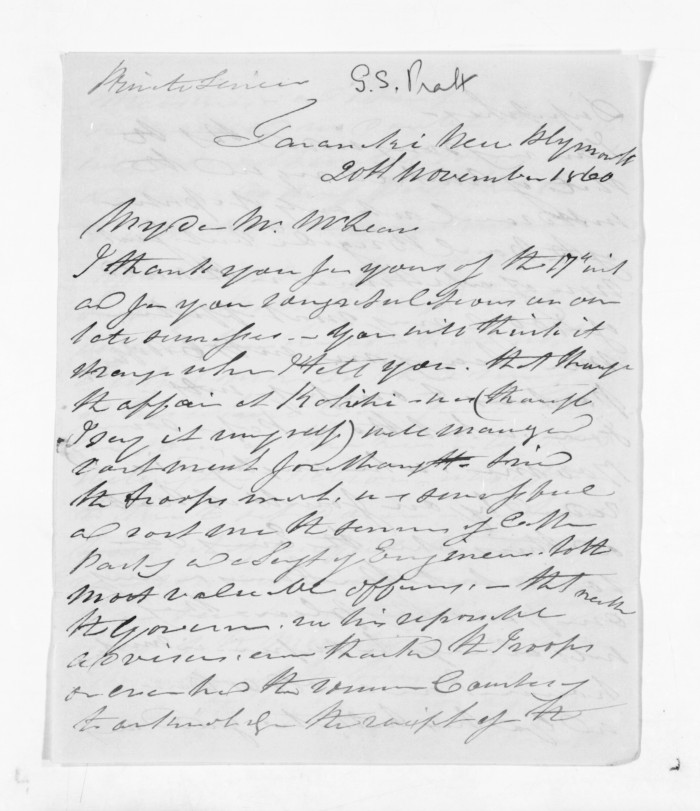 Private Series G.S. Pratt
Taranaki New Plymouth
20th November 1860
My Dr Mr. McLean
I thank you for yours of the 17th inst
and for your congratulations on our
late successes - You will think it
strange when I tell you. that though
the affair at Kohihi - was (though
I say it myself) well managed
and
the troops most. successful
and cost me the services of Capn
and a Sergt of Engineers. both
most valuable officers. - that neither
the Governor. nor his responsible
advisers. ever thanked the Troops
or even had the common Courtesy
to acknowledge the receipt of the